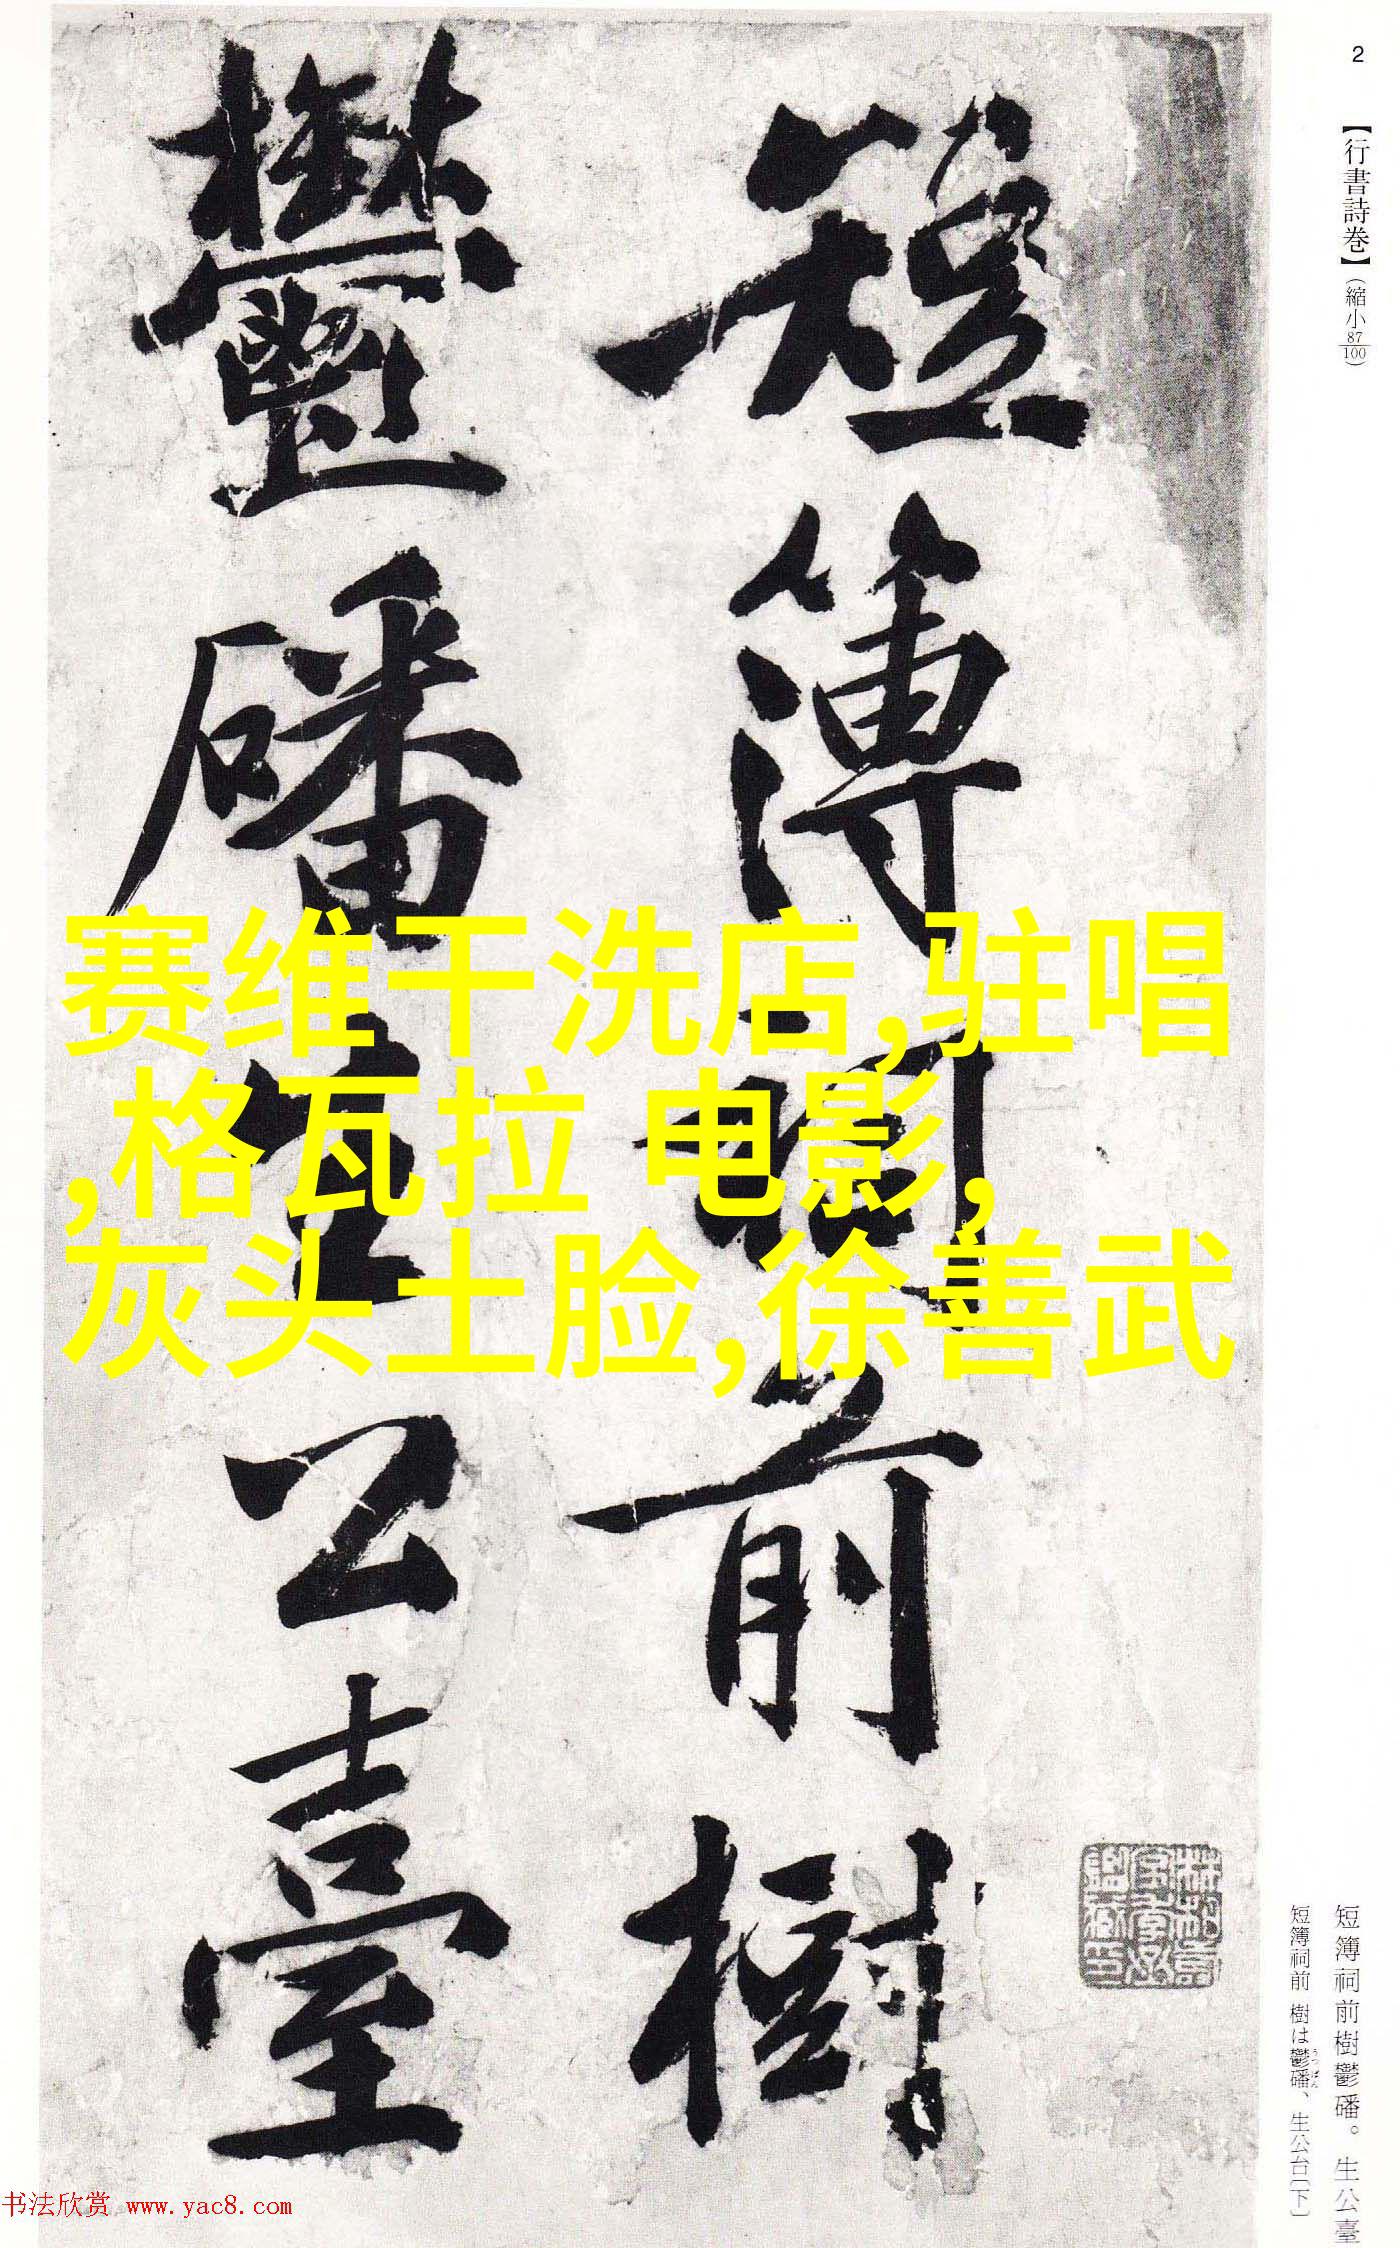 2
【行書詩巻】(縮小87/100)
短簿祠前樹
鬱磻生公臺
赛维干洗店,驻唱
,格瓦拉 电影,
灰头土脸,徐善武
短簿祠前樹鬱磻。生公臺
短簿祠前 樹は鬱磻、生公台(下)
うつ ばん
书法欣赏 www.yac8.com